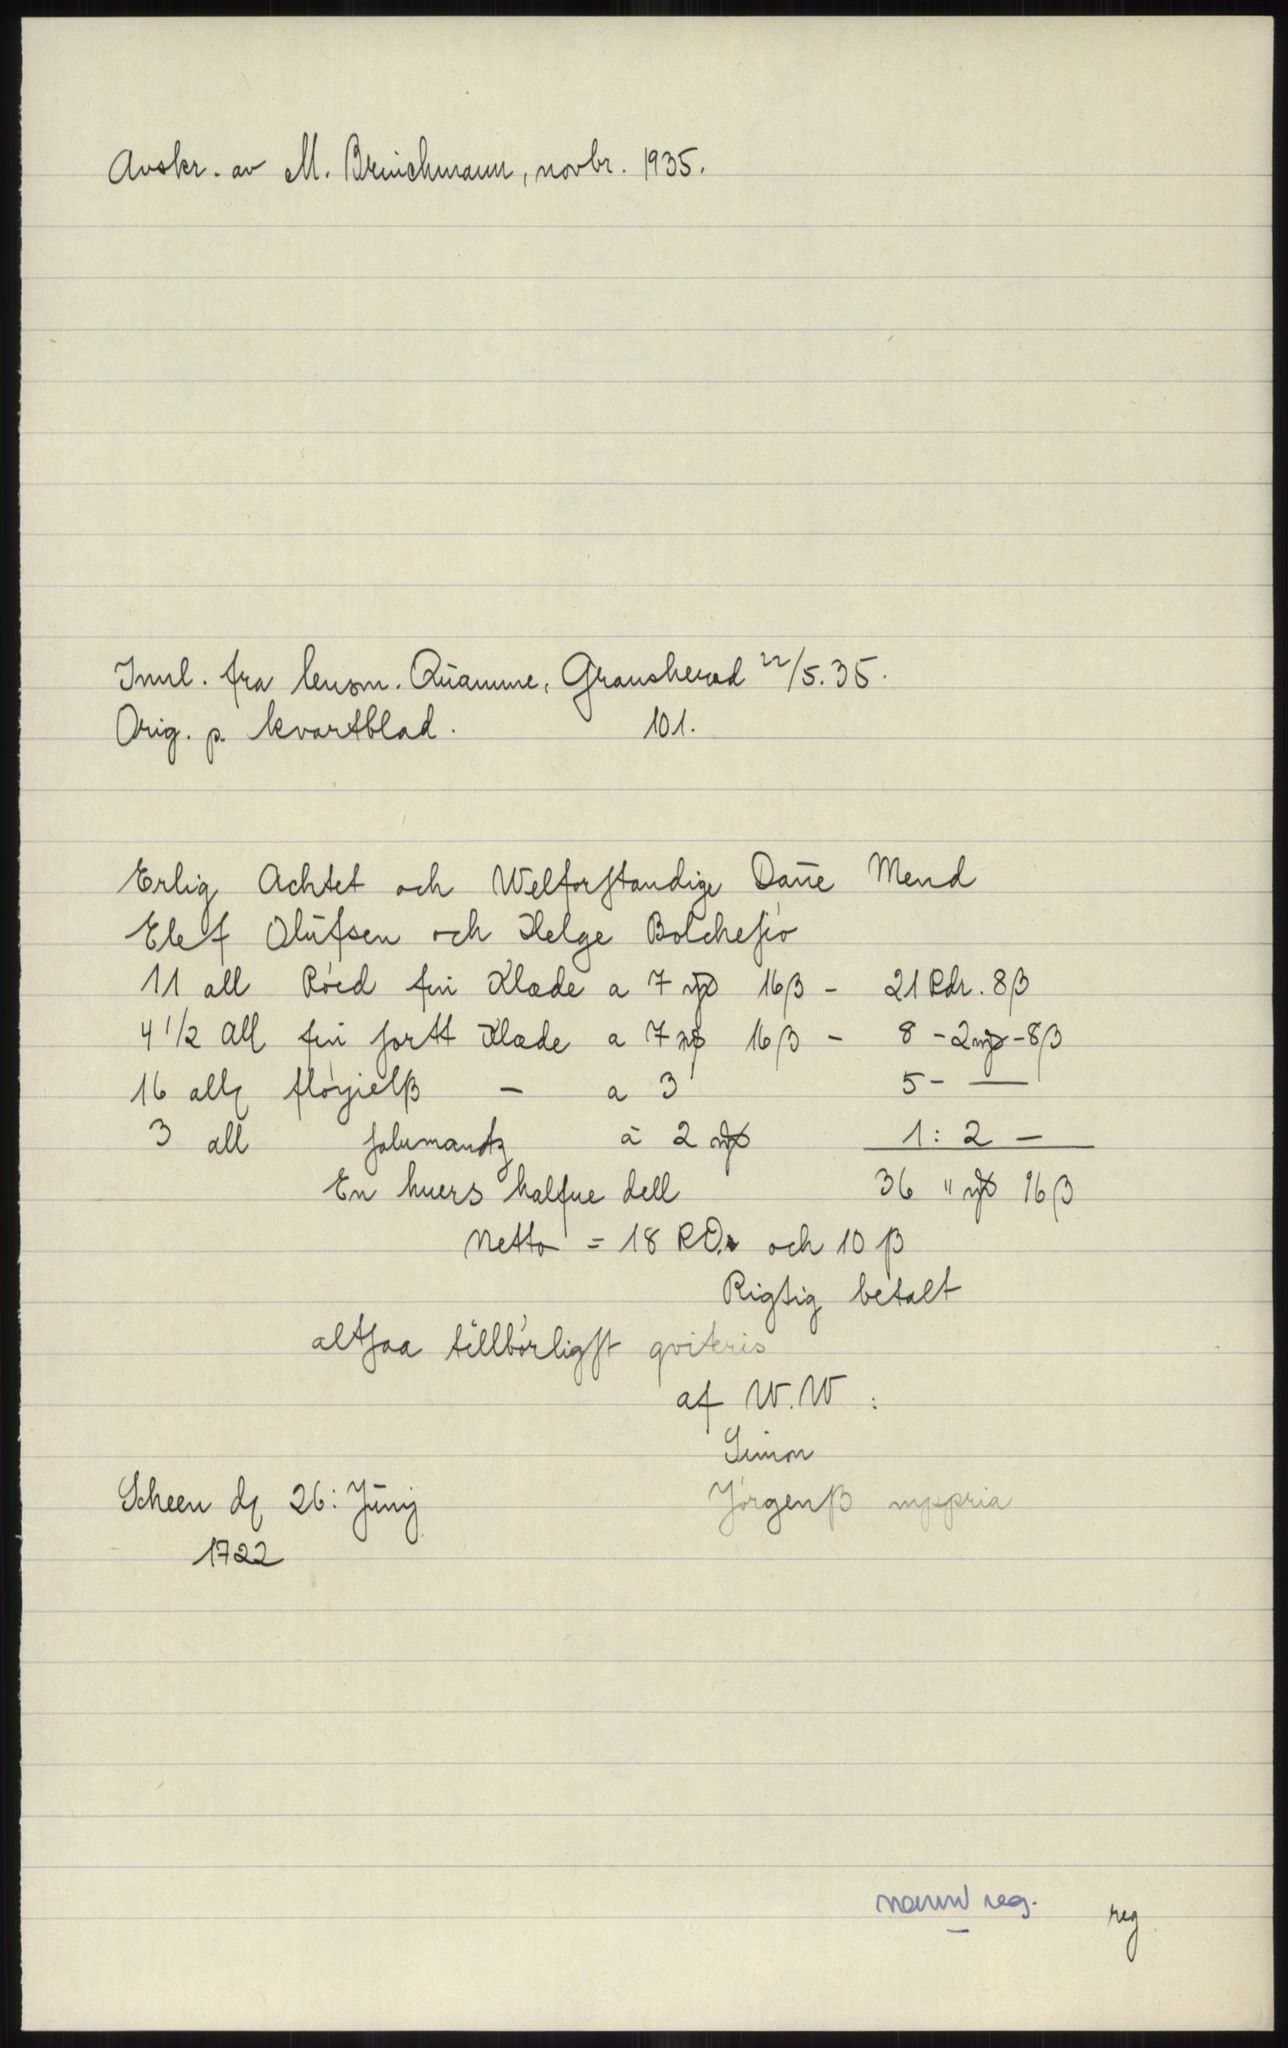 Avskr. av M. Brinchmann, novbr. 1935.
Innl. fra lensm. Qŭamme, Gransherad 22/5. 35.
Orig. p. kvartblad. 101.
Erlig Achtet och Welforstandige Dañe Mend
Elef Olŭfsen och Helge Bolchesiø
11 all Röed fin Klæde a 7 mꝥ 16 β - 21 Rdr. 8 β
4 1/2 All fin sortt Klæde a 7 mꝥ 16 β - 8 - 2 mꝥ - 8 β
16 allꝫ fløyielß - a 3 5 - —
3 all à 2 mꝥ 1 : 2 —
En huers halfue dell 36 " mꝥ 16 β
Netto = 18 RD. och 10 β
Rigtig betalt
altsaa tillbørligst qviteris
af W. W :
Simon
Scheen dꝫ 26: Jŭnij Jörgenß mppria
1722
navnreg. reg